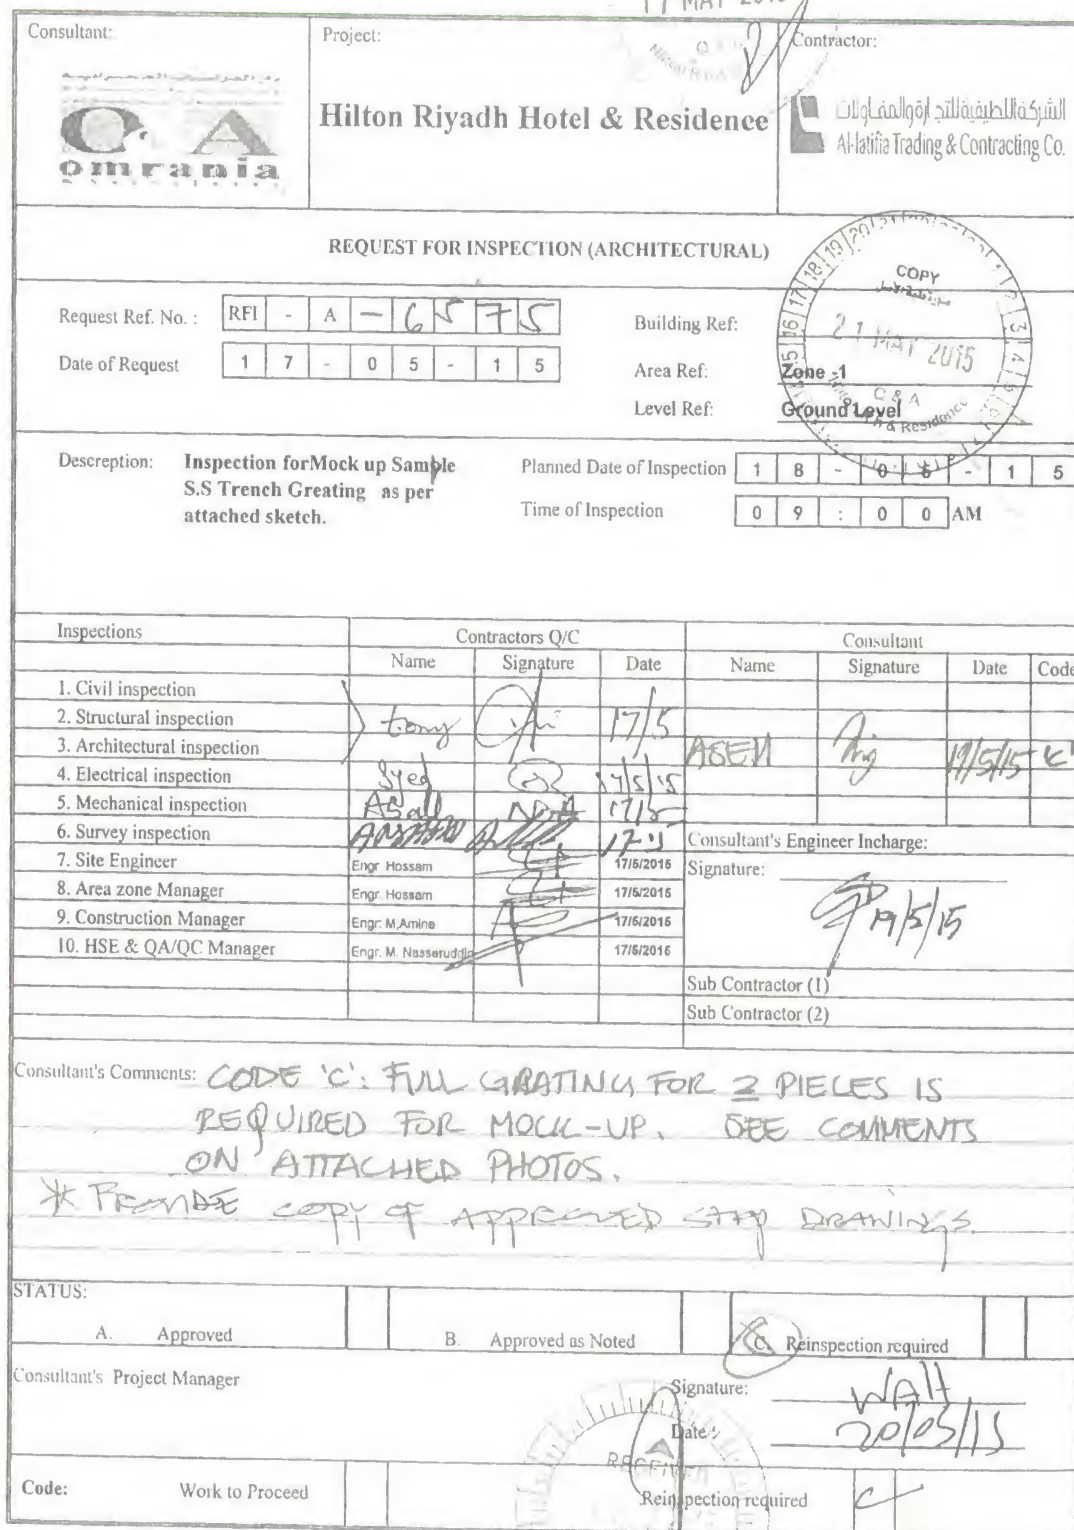 17 MAY 2015
Consultant:
Project:
Contractor:
omrania
Hilton Riyadh Hotel & Residence
الشركة اللطيفية للتجارة والمقاولات
Al-latifia Trading & Contracting Co.
REQUEST FOR INSPECTION (ARCHITECTURAL)
COPY
21 MAY 2015
Q & A
Request Ref. No. : RFI - A - 6575
Building Ref:
Date of Request 17-05-15
Area Ref: Zone -1
Level Ref: Ground Level
Descreption: Inspection forMock up Sample
S.S Trench Greating as per
attached sketch.
Planned Date of Inspection 18-05-15
Time of Inspection 09:00 AM
Inspections Contractors Q/C Consultant
Name Signature Date Name Signature Date Code
1. Civil inspection
2. Structural inspection tony 17/5
3. Architectural inspection ASEM 19/5/15 'C'
4. Electrical inspection Syed 17/5/15
5. Mechanical inspection 17/5
6. Survey inspection
Consultant's Engineer Incharge:
7. Site Engineer Engr Hossam 17/5/2015
Signature:
8. Area zone Manager Engr. Hossam 17/5/2015
9. Construction Manager Engr. M,Amine 17/5/2015
19/5/15
10. HSE & QA/QC Manager Engr. M. Nasseruddin 17/5/2015
Sub Contractor (1)
Sub Contractor (2)
Consultant's Comments: CODE 'C': FULL GRATING FOR 2 PIECES IS
REQUIRED FOR MOCK-UP. SEE COMMENTS
ON ATTACHED PHOTOS.
* PROVIDE COPY OF APPROVED SHOP DRAWINGS.
STATUS:
A. Approved
B. Approved as Noted
C. Reinspection required
Consultant's Project Manager
Signature:
Date:
20/05/15
RECEIVED
Code: Work to Proceed
Reinspection required C